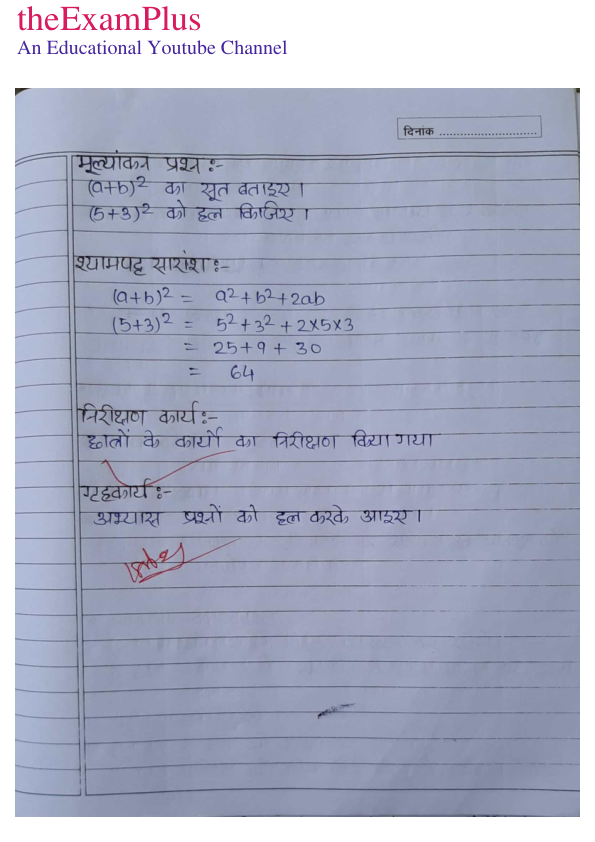 theExamPlus
An Educational Youtube Channel
दिनांक ............................
मूल्यांकन प्रश्न :-
(a+b)² का सूत्र बताइए।
(5+3)² को हल किजिए।
श्यामपट्ट सारांश :-
(a+b)² = a²+b²+2ab
(5+3)² = 5²+3²+2×5×3
= 25+9+30
= 64
निरीक्षण कार्य :-
छात्रों के कार्यों का निरीक्षण किया गया
गृहकार्य :-
अभ्यास प्रश्नों को हल करके आइए।